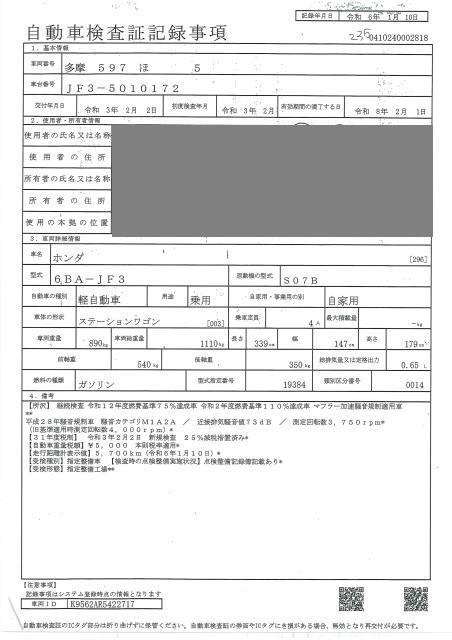 記録年月日 令和 6年 1月 10日
自動車検査証記録事項
235 0410240002818
1. 基本情報
車両番号 多摩 597 ほ 5
車台番号 JF3-5010172
交付年月日 令和 3年 2月 2日 初度検査年月 令和 3年 2月 有効期間の満了する日 令和 8年 2月 1日
2. 使用者・所有者情報
使用者の氏名又は名称
使用者の住所
所有者の氏名又は名称
所有者の住所
使用の本拠の位置
3. 車両詳細情報
車名 ホンダ [296]
型式 6BA-JF3 原動機の型式 S07B
自動車の種別 軽自動車 用途 乗用 自家用・事業用の別 自家用
車体の形状 ステーションワゴン [003] 乗車定員 4人 最大積載量 -kg
車両重量 890kg 車両総重量 1110kg 長さ 339cm 幅 147cm 高さ 179cm
前軸重 540kg 後軸重 350kg 総排気量又は定格出力 0.65 L
燃料の種類 ガソリン 型式指定番号 19384 類別区分番号 0014
4. 備考
【所沢】 継続検査 令和12年度燃費基準75%達成車 令和2年度燃費基準110%達成車 マフラー加速騒音規制適用車
**
平成28年騒音規制車 騒音カテゴリM1A2A / 近接排気騒音値73dB / 測定回転数3,750rpm*
(旧基準適用時測定回転数4,000rpm)*
【31年度税制】 令和3年2月2日 新規検査 25%減税措置済み*
【自動車重量税額】¥5,000 本則税率適用*
【走行距離計表示値】5,700km(令和6年1月10日)*
【受検種別】指定整備車 【検査時の点検整備実施状況】点検整備記録簿記載あり*
【受検形態】指定整備工場**
【注意事項】
記録事項はシステム登録時点の情報となります
車両ID K9562AR5422717
自動車検査証のICタグ部分は折り曲げずに保管ください。自動車検査証の券面やICタグにき損がある場合、無効となり再交付が必要です。